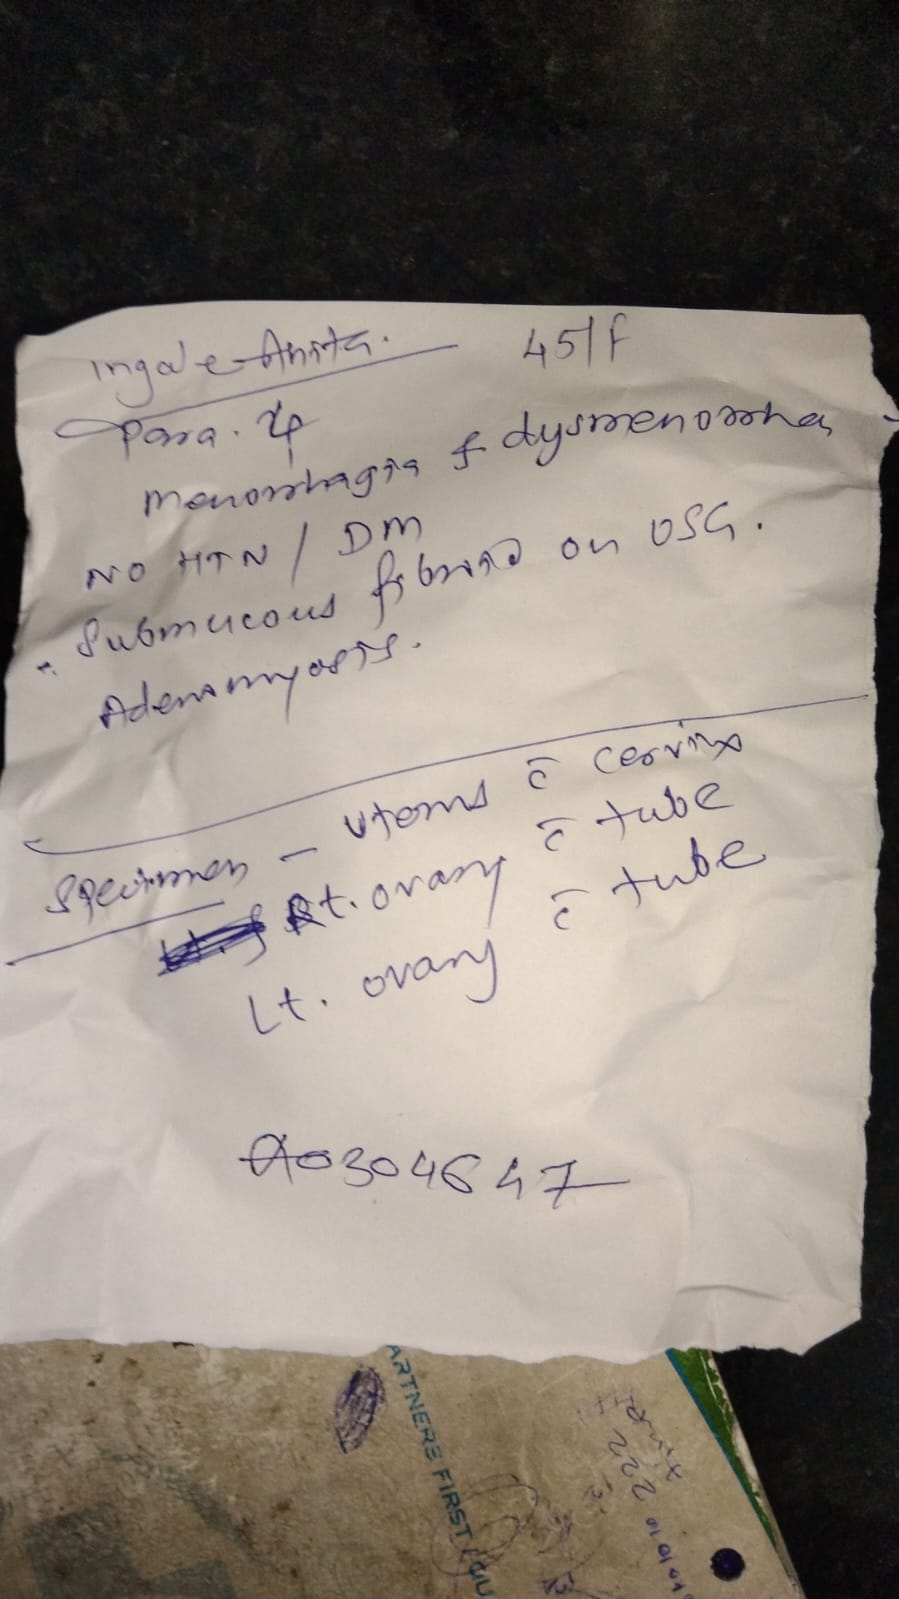 Ingale Anita. 45/F
Para. 4
Menorrhagia & dysmenorrhea
NO HTN / DM
Submucous fibroid on USG.
Adenomyosis.
Specimen - Uterus c̄ cervix
Rt. ovary c̄ tube
Lt. ovary c̄ tube
A0304647
ARTNERS FIRST
222